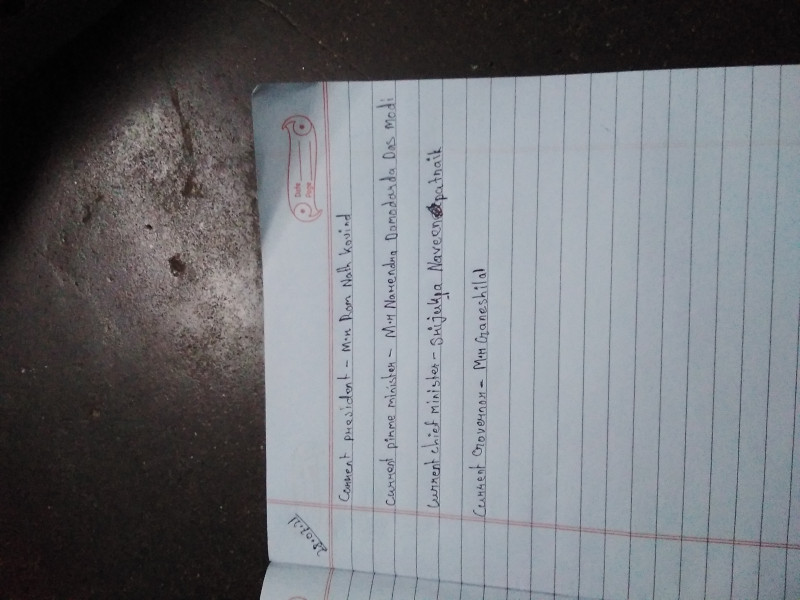 Date
Page
28.07.21
Current president - Mr Ram Nath kovind
Current pirme minister - Mr Narendra Damodarda Das Modi
Current chief minister - Srijukta Naveen patnaik
Current Governor - Mr Ganeshilal